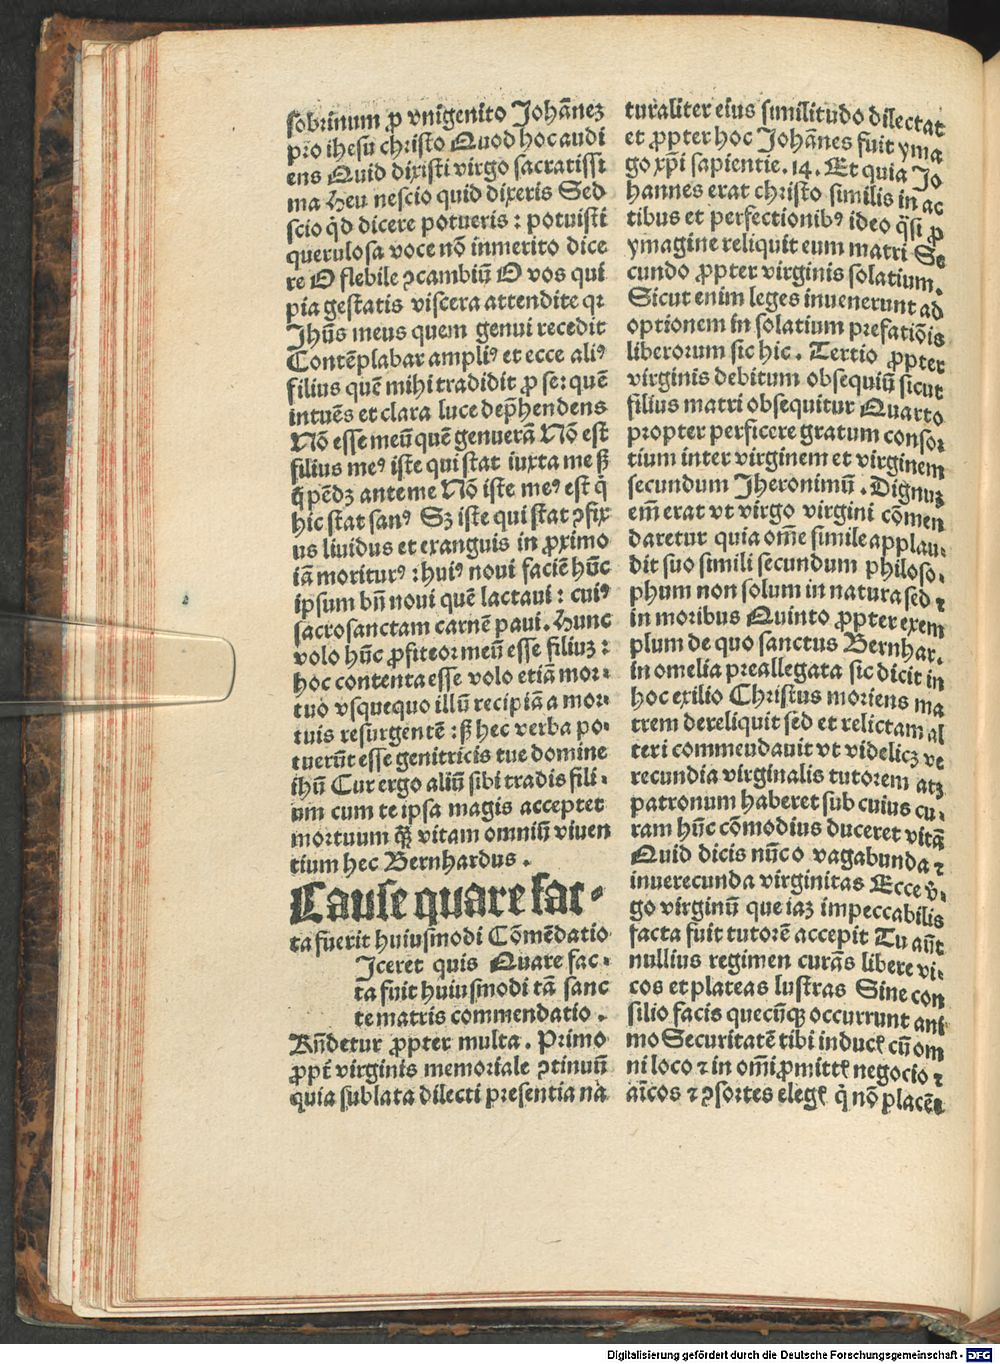 sobrinum ꝓ vnigenito Johānez
pro ihesu christo Quod hoc audi
ens Quid dixisti virgo sacratissi
ma Heu nescio quid dixeris Sed
scio qͥd dicere potueris : potuisti
querulosa voce nō inmerito dice
re O flebile ꝯcambiū O vos qui
pia gestatis viscera attendite qꝛ
Jhūs meus quem genui recedit
Contēplabar ampliꝰ et ecce aliꝰ
filius quē mihi tradidit ꝓ se: quē
intuēs et clara luce dep̄hendens
Nō esse meū quē genuerā Nō est
filius meꝰ iste qui stat iuxta me sꝫ
qͥ pēdꝫ ante me Nō iste meꝰ est qͥ
hic stat sanꝰ Sꝫ iste qui stat ꝯfix
us liuidus et exanguis in ꝓximo
iā moriturꝰ : huiꝰ noui faciē hūc
ipsum bn̄ noui quē lactaui : cuiꝰ
sacrosanctam carnē paui. Hunc
volo hūc ꝓfiteor meū esse filiuz :
hoc contenta esse volo etiā mor⸗
tuo vsquequo illū recipiā a mor⸗
tuis resurgentē : sꝫ hec verba po⸗
tuerūt esse genitricis tue domine
ihū Cur ergo aliū sibi tradis fili⸗
um cum te ipsa magis acceptet
mortuum qꝙ̄ vitam omniū viuen
tium hec Bernhardus .
Cause quare fac⸗
ta fuerit huiusmodi Cōmēdatio
Iceret quis Quare fac⸗
ta fuit huiusmodi tā sanc
te matris commendatio .
Rn̄detur ꝓpter multa . Primo
ꝓpt̄ virginis memoriale ꝯtinuū
quia sublata dilecti presentia na
turaliter eius similitudo dilectat
et ꝓpter hoc Johānes fuit yma
go xp̄i sapientie. 14. Et quia Jo
hannes erat christo similis in ac
tibus et perfectionibꝰ ideo q̄si ꝓ
ymagine reliquit eum matri Se
cundo ꝓpter virginis solatium.
Sicut enim leges inuenerunt ad
optionem in solatium prefatiōis
liberorum sic hic . Tertio ꝓpter
virginis debitum obsequiū sicut
filius matri obsequitur Quarto
propter perficere gratum consor⸗
tium inter virginem et virginem
secundum Jheronimū . Dignuz
em̄ erat vt virgo virgini cōmen
daretur quia om̄e simile applau⸗
dit suo simili secundum philoso⸗
phum non solum in natura sed ⁊
in moribus Quinto ꝓpter exem
plum de quo sanctus Bernhar.
in omelia preallegata sic dicit in
hoc exilio Christus moriens ma
trem dereliquit sed et relictam al
teri commendauit vt videlicꝫ ve
recundia virginalis tutorem atꝫ
patronum haberet sub cuius cu⸗
ram hūc cōmodius duceret vitā
Quid dicis nūc o vagabunda ⁊
inuerecunda virginitas Ecce v̄⸗
go virginū que iaz impeccabilis
facta fuit tutorē accepit Tu aūt
nullius regimen curās libere vi⸗
cos et plateas lustras Sine con
silio facis quecūqꝫ occurrunt ani
mo Securitatē tibi inducꝭ cū om
ni loco ⁊ in om̄i ꝓmittꝭ negocio ⁊
aīcos ⁊ ꝯsortes elegꝭ qͥ nō placē⸗
Digitalisierung gefördert durch die Deutsche Forschungsgemeinschaft - DFG